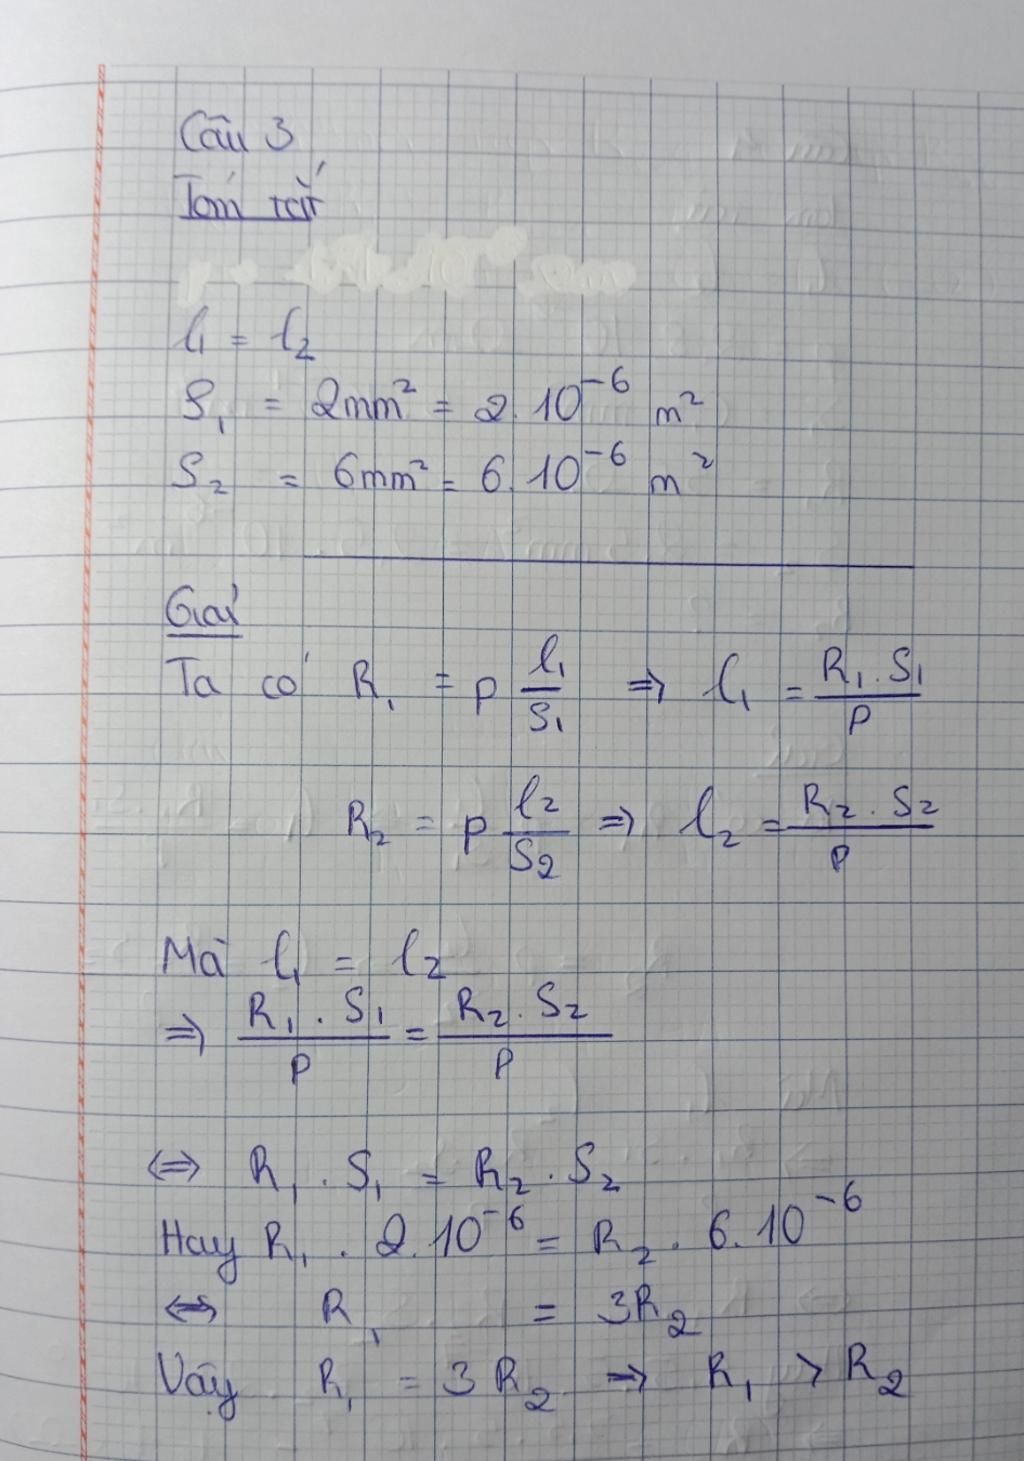 Câu 3
Tóm tắt
l₁ = l₂
S₁ = 2mm² = 2.10⁻⁶ m²
S₂ = 6mm² = 6.10⁻⁶ m²
Giải
Ta có R₁ = p l₁/S₁ => l₁ = R₁.S₁/p
R₂ = p l₂/S₂ => l₂ = R₂.S₂/p
Mà l₁ = l₂
=> R₁.S₁/p = R₂.S₂/p
<=> R₁.S₁ = R₂.S₂
Hay R₁.2.10⁻⁶ = R₂.6.10⁻⁶
<=> R₁ = 3R₂
Vậy R₁ = 3R₂ => R₁ > R₂